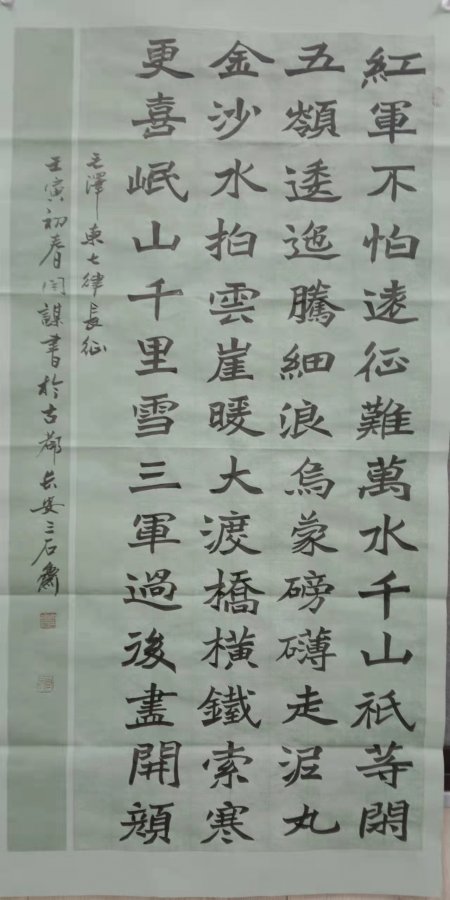 紅軍不怕遠征難萬水千山祇等閑
五嶺逶迤騰細浪烏蒙磅礴走泥丸
金沙水拍雲崖暖大渡橋橫鐵索寒
更喜岷山千里雪三軍過後盡開顏
毛澤東七律長征
壬寅初春閆謀書於古都長安三石齋